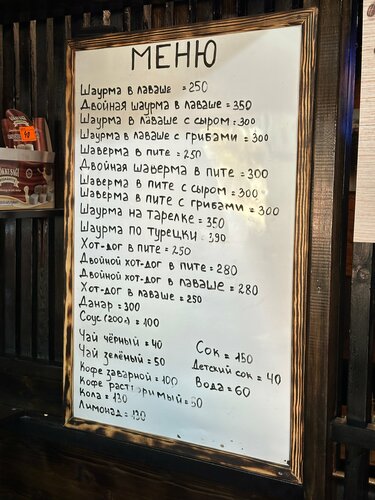 МЕНЮ
Шаурма в лаваше = 250
Двойная шаурма в лаваше = 350
Шаурма в лаваше с сыром = 300
Шаурма в лаваше с грибами = 300
Шаверма в пите = 250
Двойная шаверма в пите = 300
Шаверма в пите с сыром = 300
Шаверма в пите с грибами = 300
Шаурма на тарелке = 350
Шаурма по турецки = 390
Хот-дог в пите = 250
Двойной хот-дог в пите = 280
Двойной хот-дог в лаваше = 280
Хот-дог в лаваше = 250
Данар = 300
Соус (200г) = 100
Чай чёрный = 40
Чай зелёный = 50
Кофе заварной = 100
Кофе растворимый = 50
Кола = 130
Лимонад = 130
Сок = 150
Детский сок = 40
Вода = 60